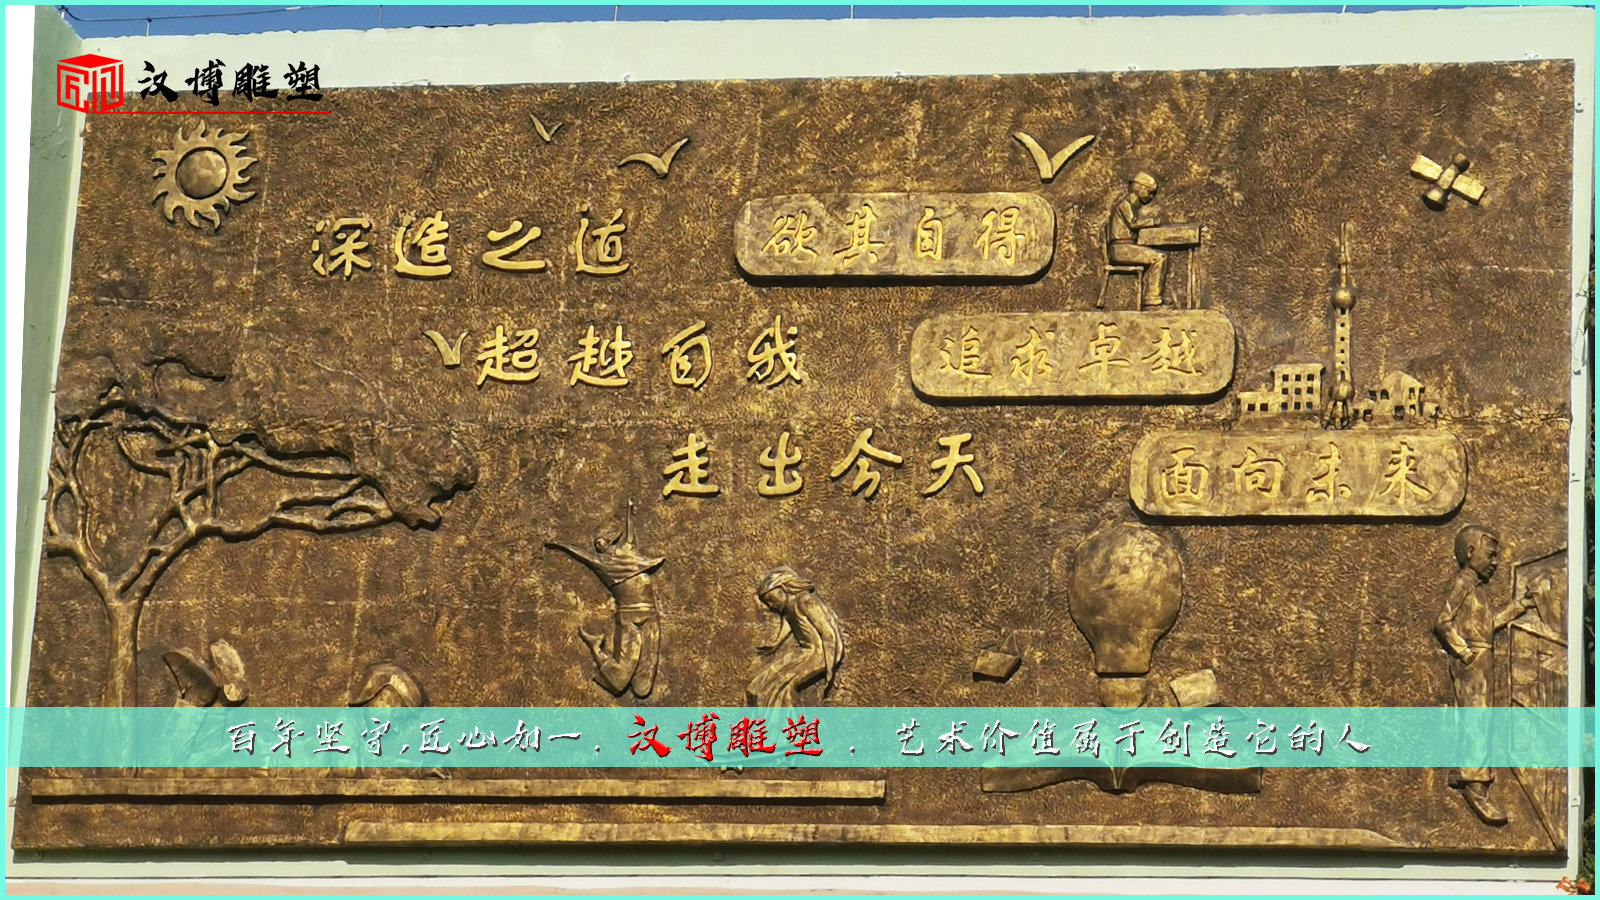 汉博雕塑
深造之道 欲其自得
超越自我 追求卓越
走出今天 面向未来
百年坚守,匠心如一,汉博雕塑,艺术价值属于创造它的人